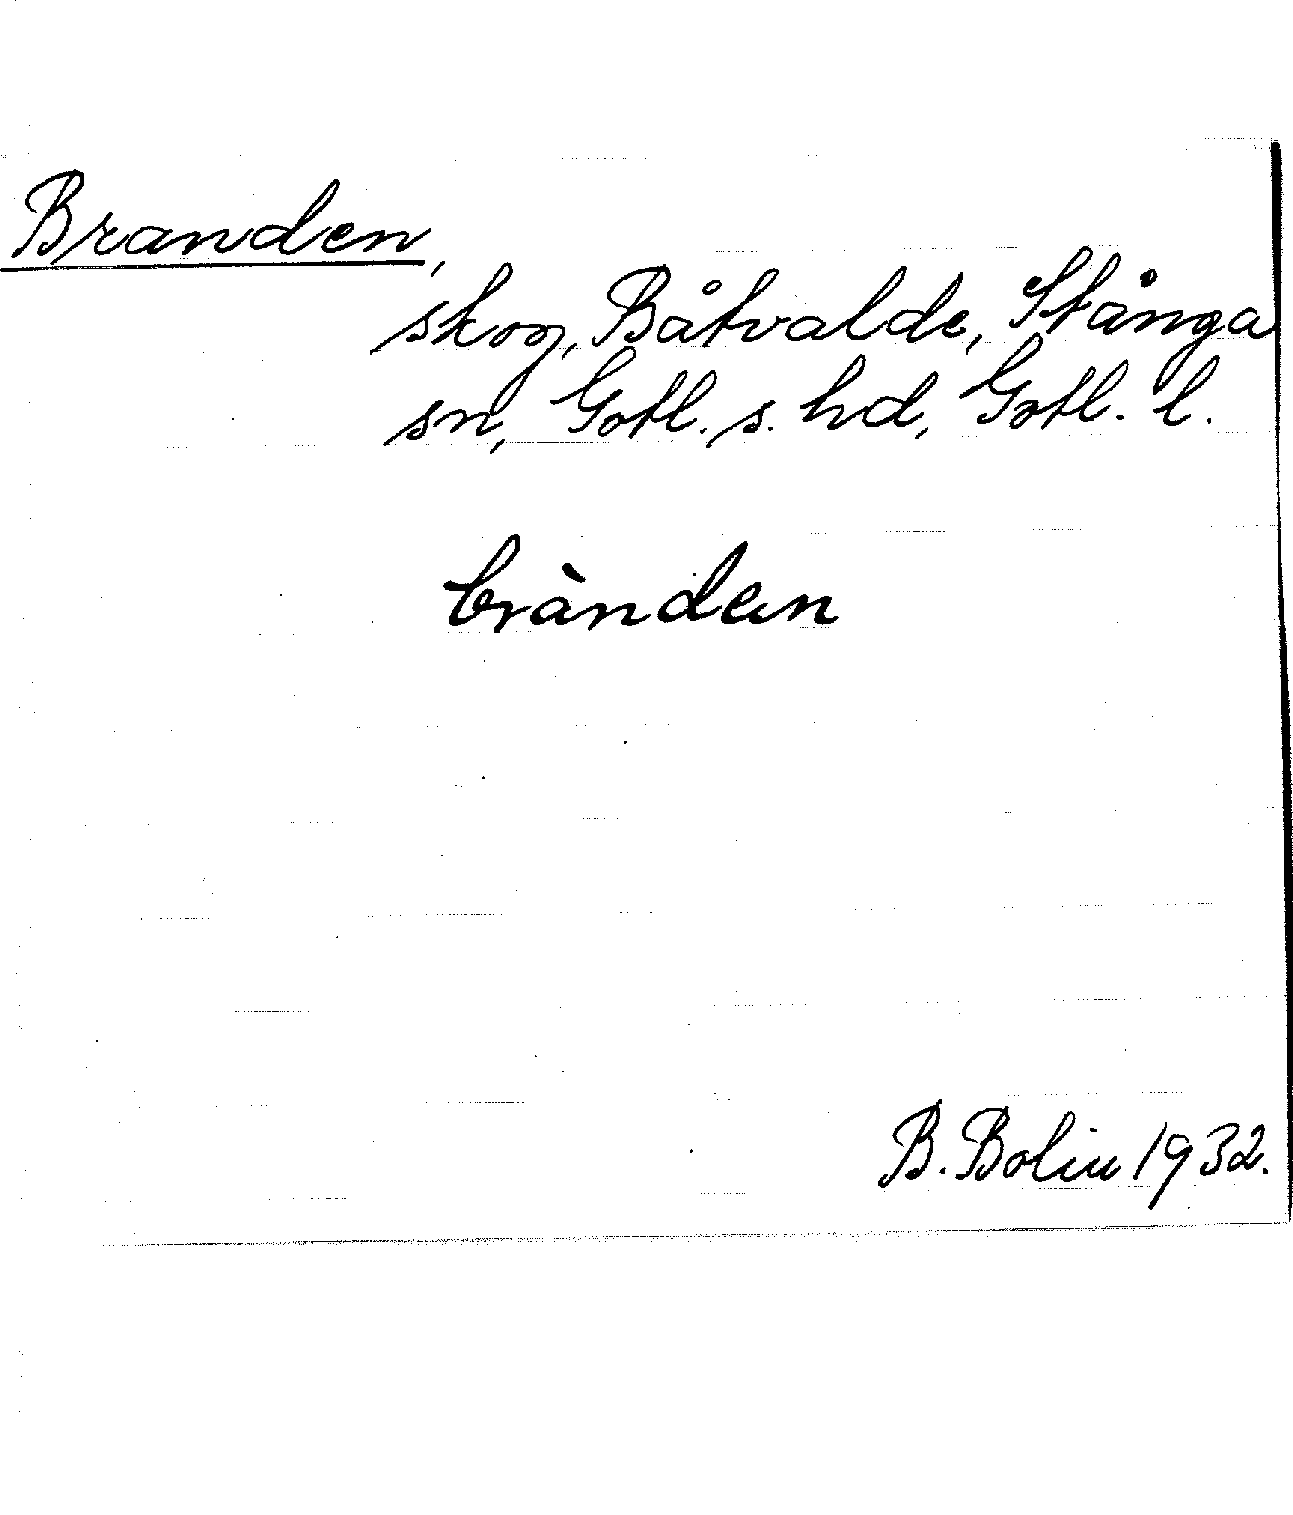 Branden,
skog, Båtvalde, Stånga
sn, Gotl. s. hd, Gotl. l.
brànden
B. Bolin 1932.